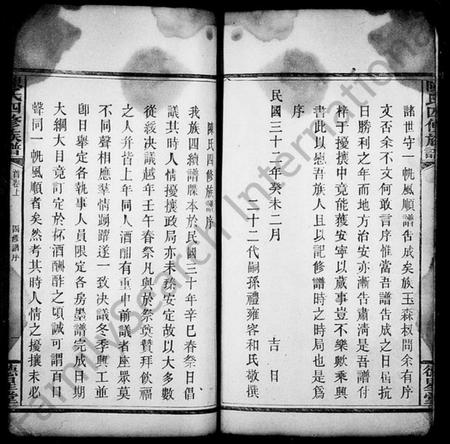 諸世守一帆風順譜告成矣族玉森权問余有序
文否余不文何敢言序惟當吾譜告成之日旣抗
日勝利之年而地方治安亦漸告肅清是吾譜付
梓于擾攘中竟能獲安寧以蕆事豈不樂歟乘興
書此以慰吾族人且以記修譜時之時局也是爲
序
民國三十二年癸未二月 吉日
二十二代嗣孫禮雍容和氏敬撰
陳氏四修族譜
德星堂
陳氏四修族譜序
我族四續譜牒本於民國三十年辛巳春祭日倡
議其時人情擾攘政局亦未奠安定故以大多數
從緩决議越年壬午春祭凡與於祭奠贊拜飲福
之人并皆上年同人酒酣有重申前議者座眾莫
不同聲相應羣情踴躍遂一致决議冬季興工並
卽日舉定各執事人員限定各房墨譜完成日期
大綱大目竟訂定於杯酒酬酢之頃誠可謂百口
聲同一帆風順者矣然考其時人情之擾攘未必
陳氏四修族譜
首卷上
四修譜序
德星堂
FamilySearch International